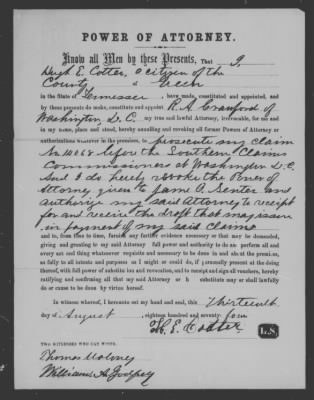 POWER OF ATTORNEY.
Know all Men by these Presents, That I
Hugh E. Cotter, a citizen of the
County of Green
in the State of Tennessee have made, constituted and appointed, and
by these presents do make, constitute and appoint R. A. Crawford of
Washington D.C. my true and lawful Attorney, irrevocable, for me and
in my name, place and stead, hereby annulling and revoking all former Powers of Attorney or
authorizations whatever in the premises, to prosecute my Claim
No 14068 before the Southern Claims
Commissioners at Washington D.C.
And I do hereby revoke the Power of
Attorney given to Jame A. Senter and
authorize my said Attorney to receipt
for and receive the draft that may issue
in payment of my said claims
and to, from time to time, furnish any further evidence necessary or that may be demanded,
giving and granting to my said Attorney full power and authority to do and perform all and
every act and thing whatsoever requisite and necessary to be done in and about the premises,
as fully to all intents and purposes as I might or could do, if personally present at the doing
thereof, with full power of substitution and revocation, and to receipt and sign all vouchers, hereby
ratifying and confirming all that my said Attorney or h substitute may or shall lawfully
do or cause to be done by virtue hereof.
In witness whereof, I hereunto set my hand and seal, this Thirteenth
day of August, eighteen hundred and seventy four
H. E. Cotter L.S.
TWO WITNESSES WHO CAN WRITE.
Thomas Maloney
William A. Godfrey